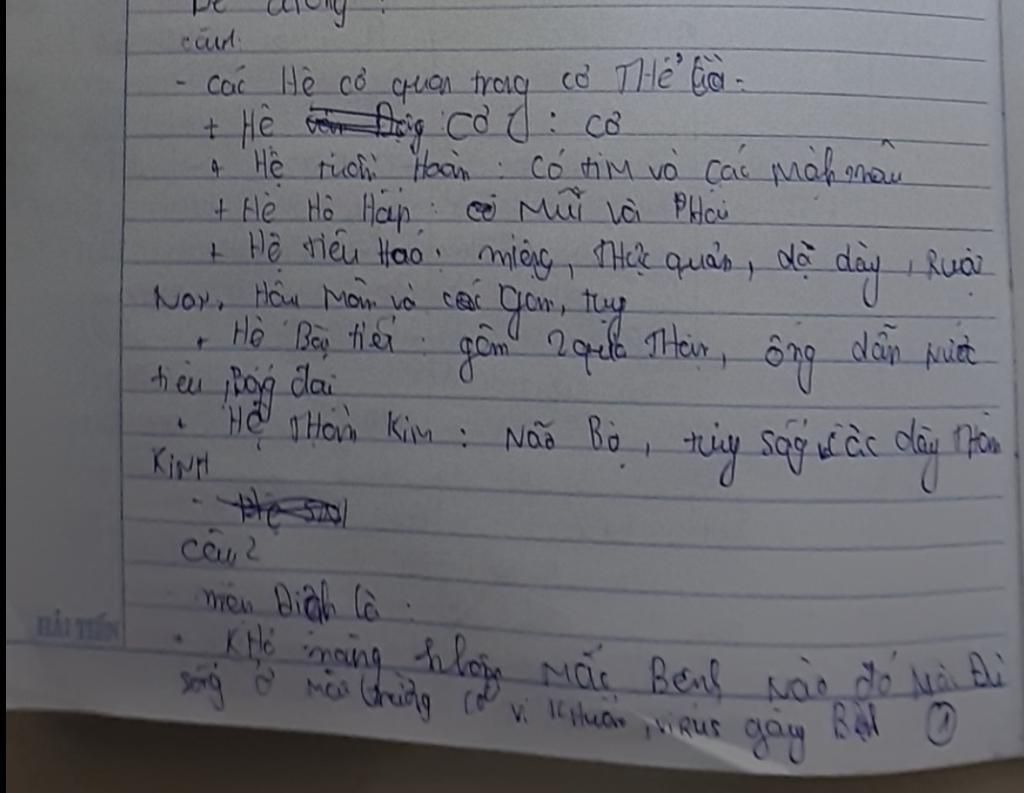 Đề cương:
câu1.
- Các Hệ cơ quan trong cơ Thể là:
+ Hệ cơ: cơ
+ Hệ tuần Hoàn: Có tim và các Mạch máu
+ Hệ Hô Hấp: có Mũi Và PHổi
+ Hệ tiêu Hoá: miệng, THực quản, dạ dày, Ruột
Non, Hậu Môn và các gan, tụy
+ Hệ Bài tiết: gồm 2 quả THận, ống dẫn nước
tiểu, Bóng đái
+ Hệ THần Kinh: Não Bộ, tủy sống, các dây thần
KiNH
Câu 2
miễn Dịch là:
Khả năng không Mắc Bệnh nào đó Mà Dù
sống ở môi trường có vi Khuẩn, virus gây Bệnh ①
HẢI TIẾN